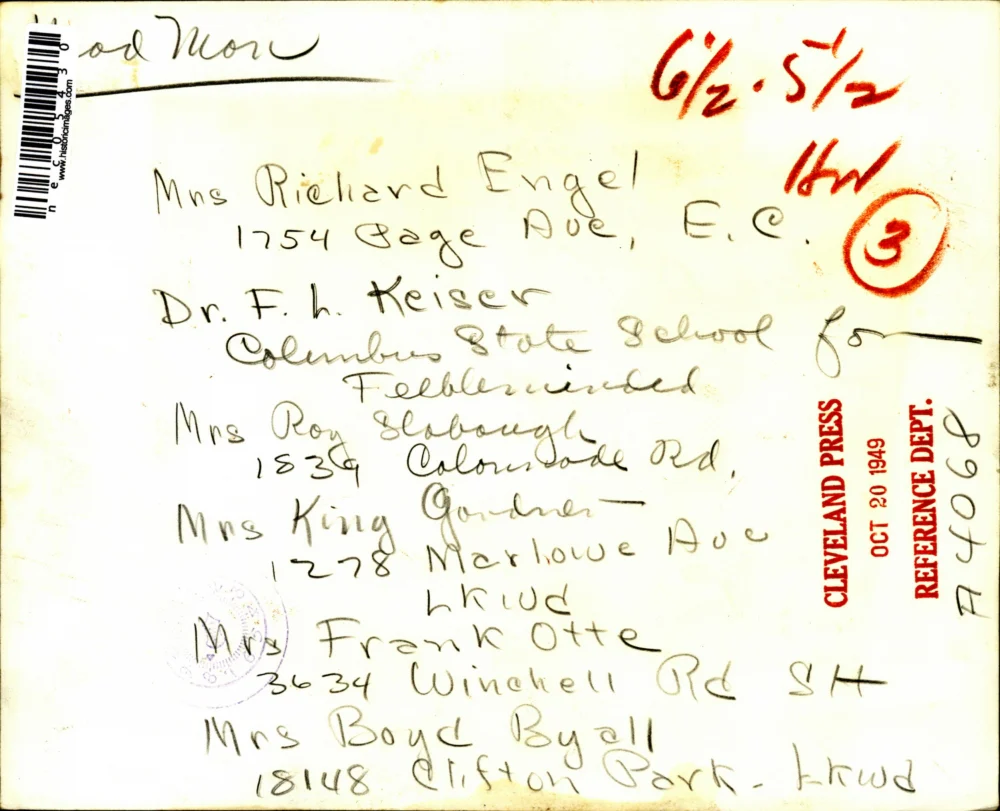 od Mon
6 1/2 . 5 1/2
HW
3
Mrs Richard Engel
1754 Page Ave, E. C.
Dr. F. L. Keiser
Columbus State School for
Feebleminded
Mrs Roy Slabaugh
1839 Colonnade Rd.
Mrs King Gardner
1278 Marlowe Ave
LKwd
Mrs Frank Otte
3634 Winchell Rd SH
Mrs Boyd Byall
18148 Clifton Park - Lkwd
CLEVELAND PRESS
OCT 20 1949
REFERENCE DEPT.
A4068
www.historicimages.com
nec05430